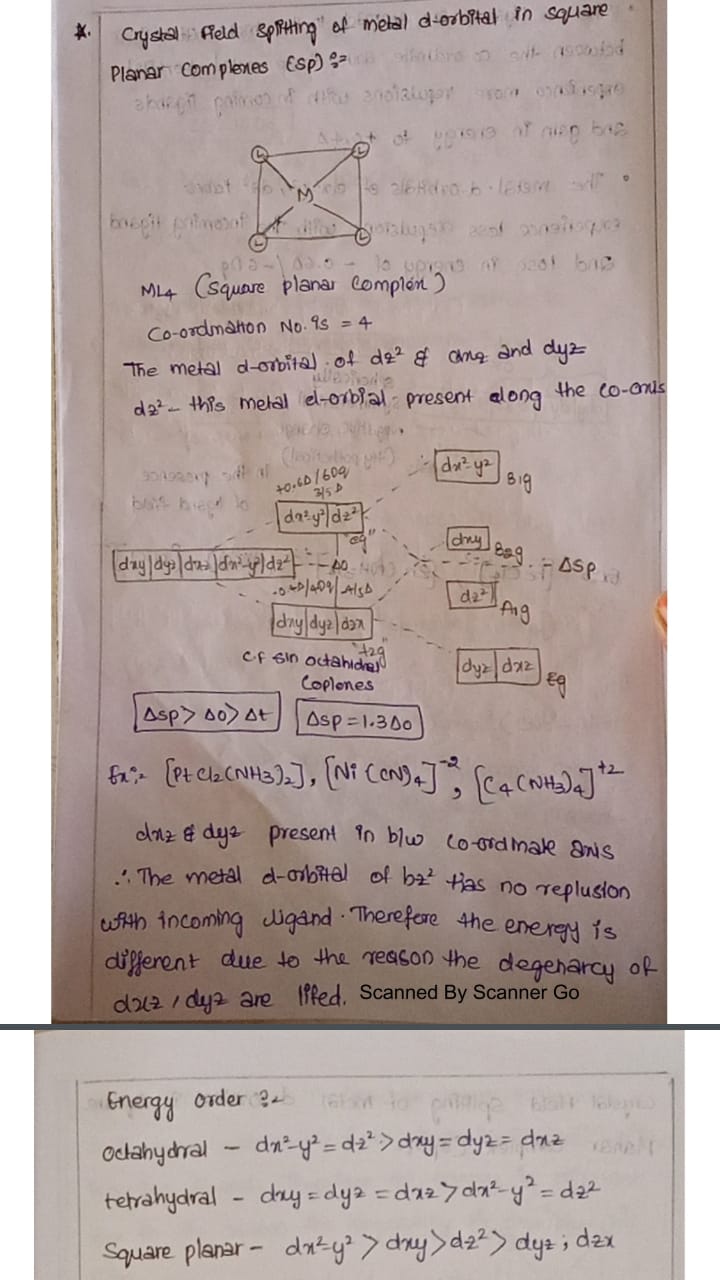 *. Crystal field splitting of metal d-orbital in square
Planar Complexes (SP) :-
L L
M
L L
ML4 (square planar Complex)
Co-ordination No. is = 4
The metal d-orbital of dz² & dxz and dyz
dz² - this metal d-orbial present along the co-axis
dx²-y² B1g
+0.6Δ/6Dq
3/5 Δ
dx²y² | dz²
"eg"
dxy B2g
dxy | dyz | dxz | dx²-y² | dz² - Δo - ΔSP
dz² A1g
dxy | dyz | dzx
"t2g"
C.F sin octahidral
Coplones
dyz | dxz Eg
Δsp > Δo > Δt Δsp = 1.3Δo
Ex:- [Pt Cl2(NH3)2], [Ni (CN)4]⁻², [C4(NH3)4]⁺²
dxz & dyz present in b/w co-ordinate axis
∴ The metal d-orbital of bz² has no replusion
with incoming ligand. Therefore the energy is
different due to the reason the degenarcy of
dxz, dyz are lifed. Scanned By Scanner Go
Energy order :-
Octahydral - dx²-y² = dz² > dxy = dyz = dxz
tetrahydral - dxy = dyz = dxz > dx²-y² = dz²
Square planar - dx²-y² > dxy > dz² > dyz ; dzx